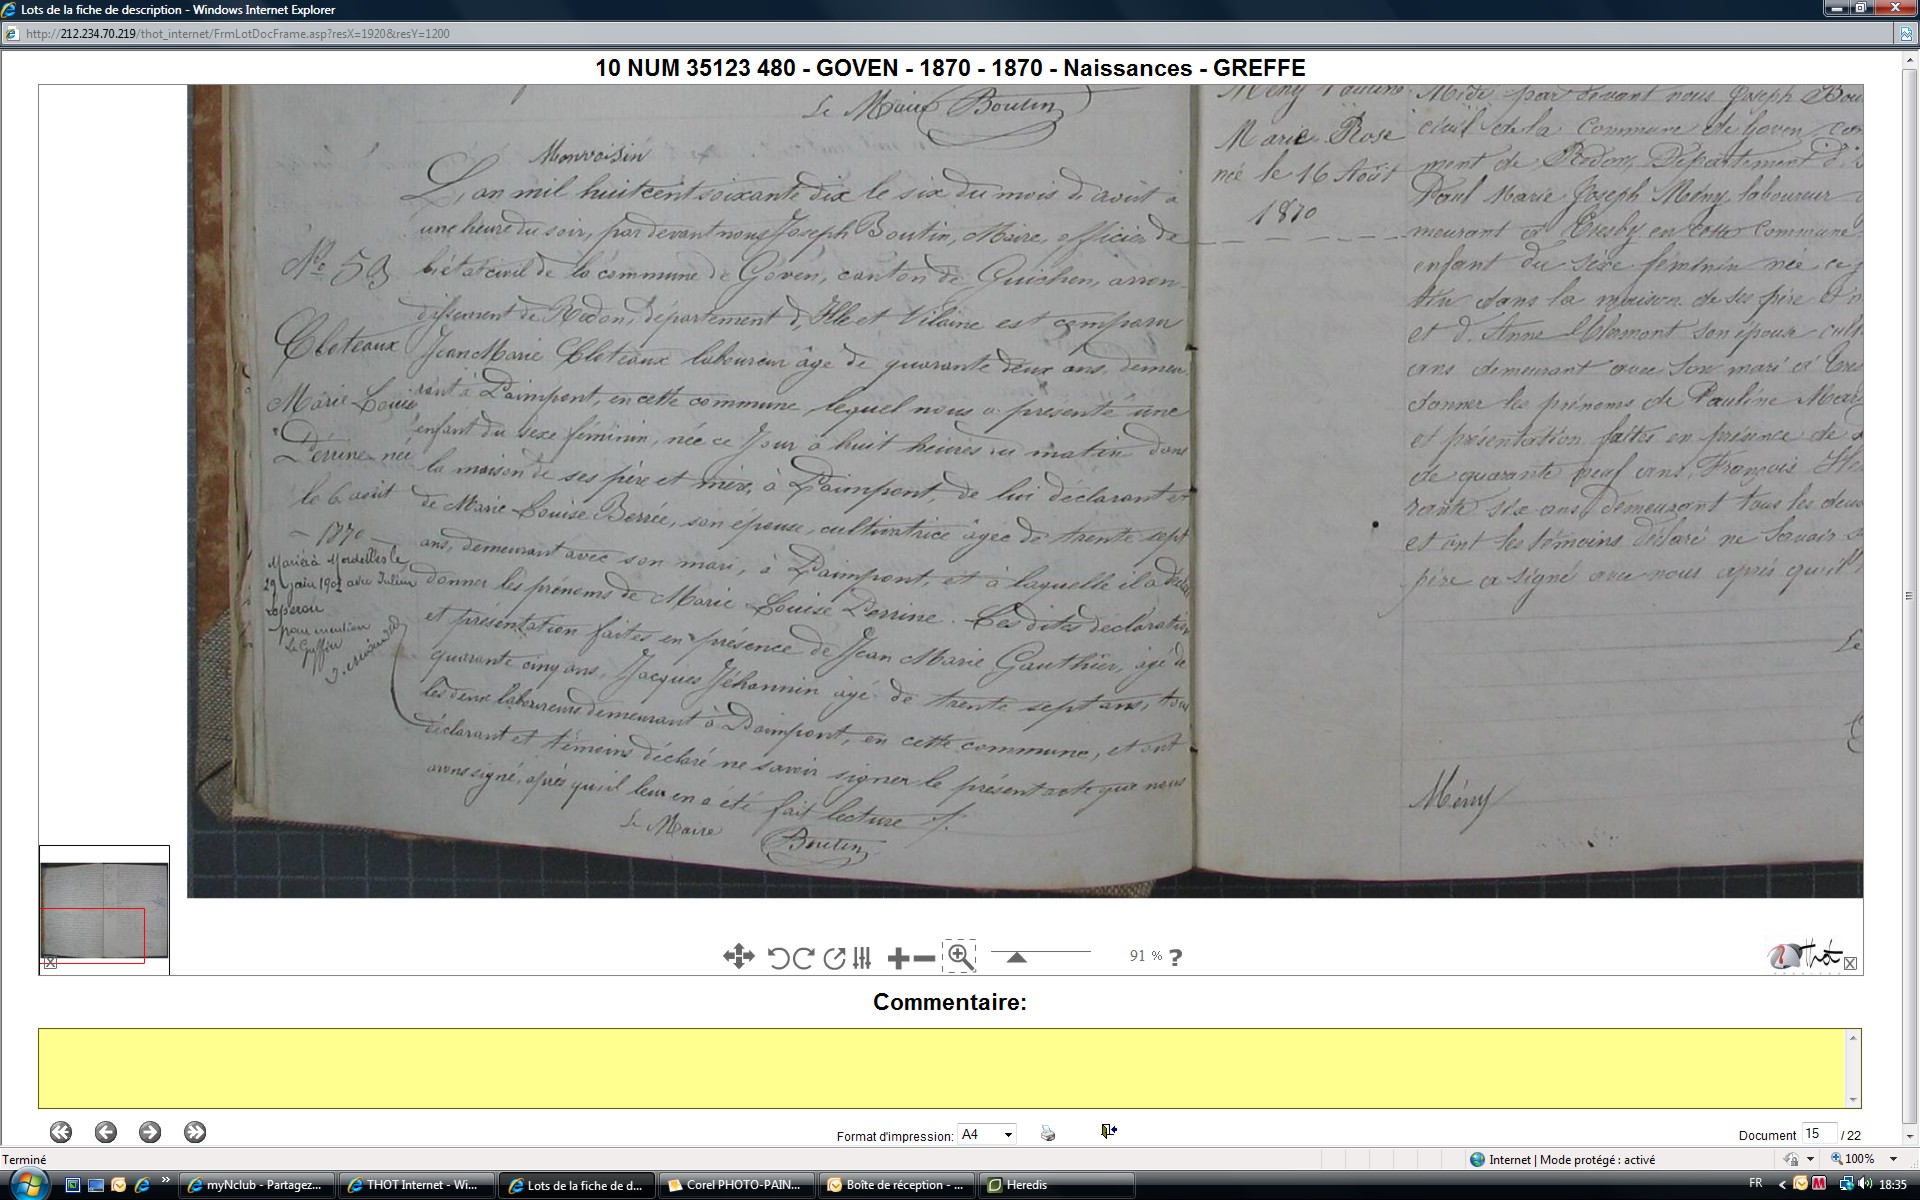 Lots de la fiche de description - Windows Internet Explorer
http://212.234.70.219/thot_internet/FrmLotDocFrame.asp?resX=1920&resY=1200
10 NUM 35123 480 - GOVEN - 1870 - 1870 - Naissances - GREFFE
Le Maire Boutin
Monvoisin
L'an mil huit cent soixante dix le six du mois d'août à
une heure du soir, par devant nous Joseph Boutin, Maire, officier de
l'état civil de la commune de Goven, canton de Guichen, arron-
dissement de Redon, département d'Ille et Vilaine est comparu
Jean Marie Cloteaux laboureur âgé de quarante deux ans, demeu-
rant à Paimpont, en cette commune, lequel nous a présenté une
enfant du sexe féminin, née ce jour à huit heures du matin dans
la maison de ses père et mère, à Paimpont, de lui déclarant et
de Marie Louise Berrée, son épouse, cultivatrice âgée de trente sept
ans, demeurant avec son mari, à Paimpont, et à laquelle il a déclaré
donner les prénoms de Marie Louise Perrine. Ces dites déclaration
et présentation faites en présence de Jean Marie Gauthier, âgé de
quarante cinq ans, Jacques Jéhannin âgé de trente sept ans, tous
les deux laboureurs demeurant à Paimpont, en cette commune, et ont
déclarant et témoins déclaré ne savoir signer le présent acte que nous
avons signé, après qu'il leur en a été fait lecture ./.
Le Maire
Boutin
No 59
Cloteaux
Marie Louise
Perrine née
le 6 août
- 1870 -
Mariée à Mordelles le
29 juin 1902 avec Julien
pour mention
Le Greffier
Mény Pauline
Marie Rose
née le 16 Août
1870
Midi par devant nous Joseph Bou
civil de la commune de Goven con
ment de Redon, Département d'I
Paul Marie Joseph Mény laboureur
meurant à en cette commune
enfant du sexe féminin née ce j
dans la maison de ses père et m
et d'Anne son épouse cult
ans demeurant avec son mari à
donner les prénoms de Pauline Marie
et présentation faites en présence de
de quarante neuf ans, François
rante six ans demeurant tous les deux
et ont les témoins déclaré ne savoir s
père a signé avec nous après qu'il
Le
Mény
91 % ?
Thot
Commentaire:
Format d'impression: A4
Document 15 / 22
Terminé
Internet | Mode protégé : activé
100%
myNclub - Partagez...
THOT Internet - Wi...
Lots de la fiche de d...
Corel PHOTO-PAIN...
Boîte de réception - ...
Heredis
FR
18:35